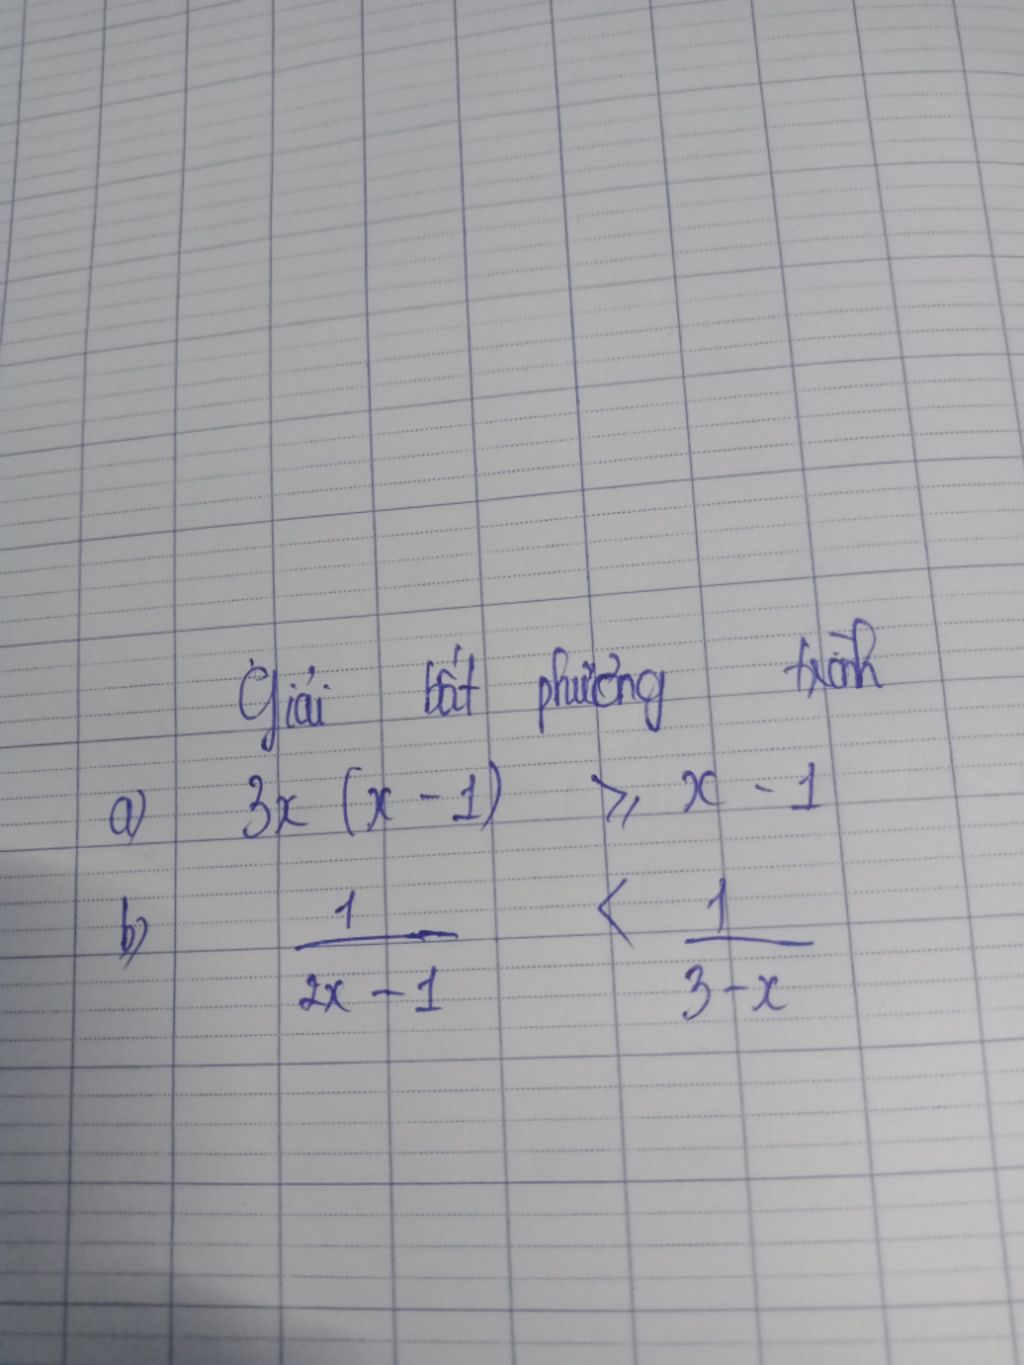 Giải bất phương trình
a) 3x (x - 1) ⩾ x - 1
b) 1/(2x - 1) < 1/(3 - x)